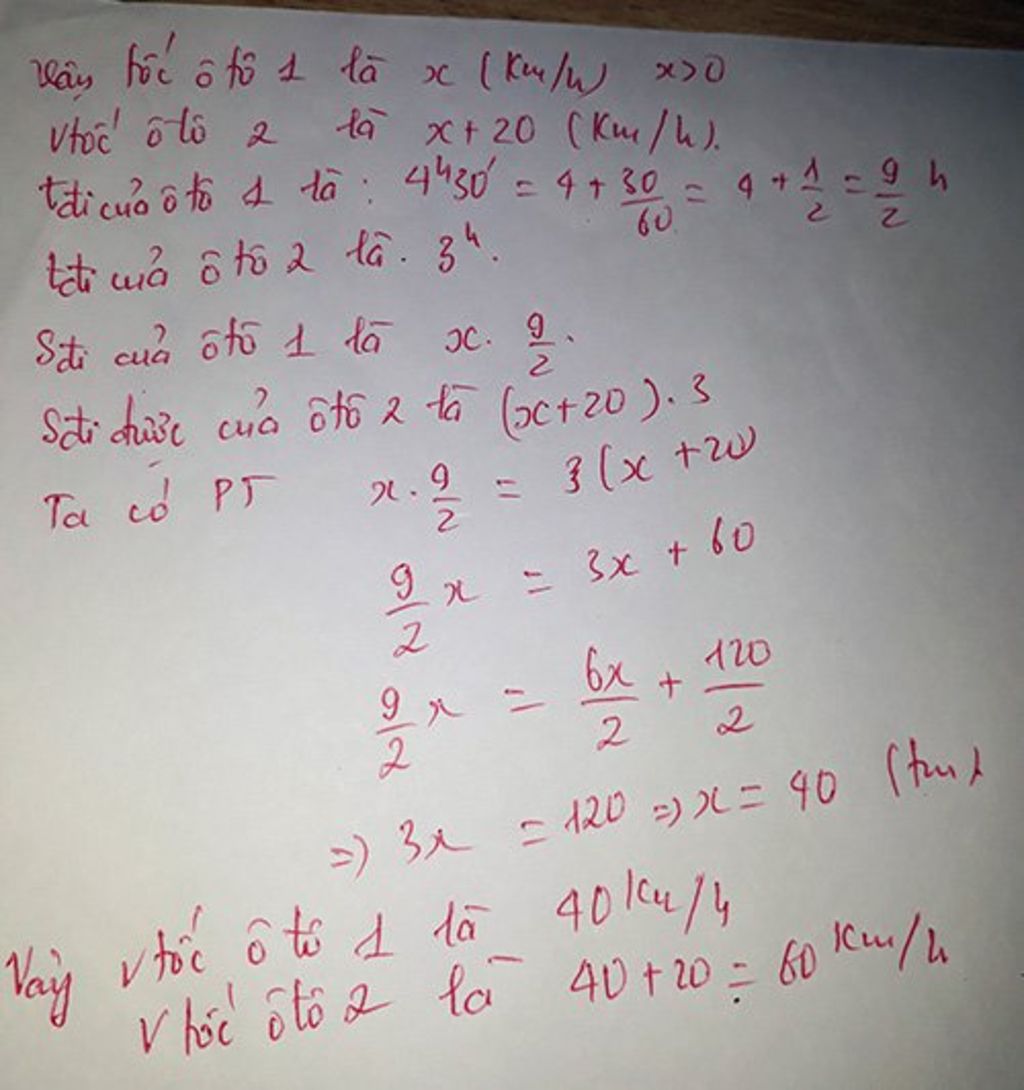 Vận tốc ô tô 1 là x (Km/h) x>0
Vtốc ô tô 2 là x+20 (Km/h).
tđi của ô tô 1 là: 4h30' = 4 + 30/60 = 4 + 1/2 = 9/2 h
tđi của ô tô 2 là. 3h.
Sđi của ô tô 1 là x. 9/2.
Sđi được của ô tô 2 là (x+20).3
Ta có PT x. 9/2 = 3(x +20)
9/2 x = 3x + 60
9/2 x = 6x/2 + 120/2
=> 3x = 120 => x = 40 (tm)
Vậy vtốc ô tô 1 là 40 Km/h
Vtốc ô tô 2 là 40+20 = 60 Km/h